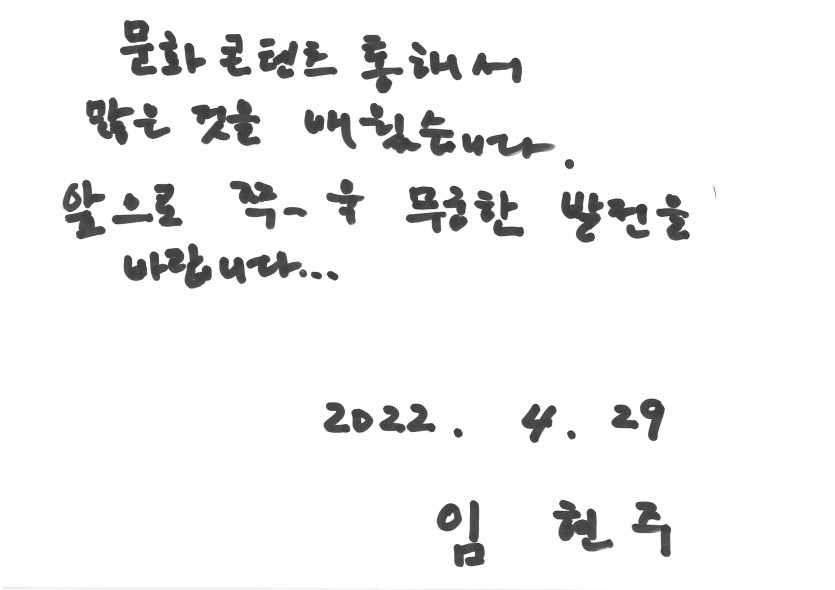 문화 콘텐츠 통해서
많은 것을 배웠습니다.
앞으로 쭉-욱 무궁한 발전을
바랍니다...
2022. 4. 29
임 현 주